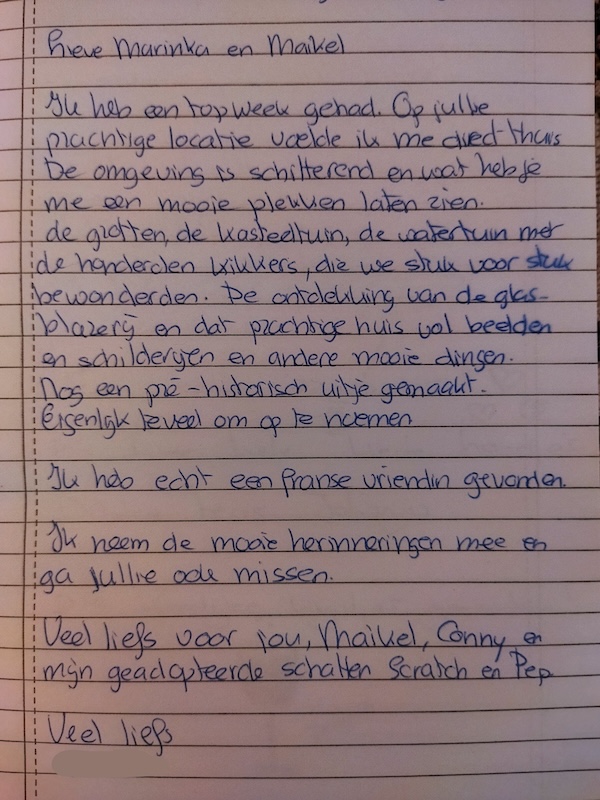 Lieve Marinka en Maikel
Ik heb een topweek gehad. Op jullie
prachtige locatie voelde ik me direct thuis
De omgeving is schitterend en wat heb je
me een mooie plekken laten zien.
de grotten, de kasteeltuin, de watertuin met
de honderden kikkers, die we stuk voor stuk
bewonderden. De ontdekking van de glas-
blazerij en dat prachtige huis vol beelden
en schilderijen en andere mooie dingen.
Nog een pré-historisch uitje gemaakt.
Eigenlijk teveel om op te noemen
Ik heb echt een franse vriendin gevonden.
Ik neem de mooie herinneringen mee en
ga jullie ook missen.
Veel liefs voor jou, Maikel, Conny en
mijn geadopteerde schatten Scratch en Pep
Veel liefs